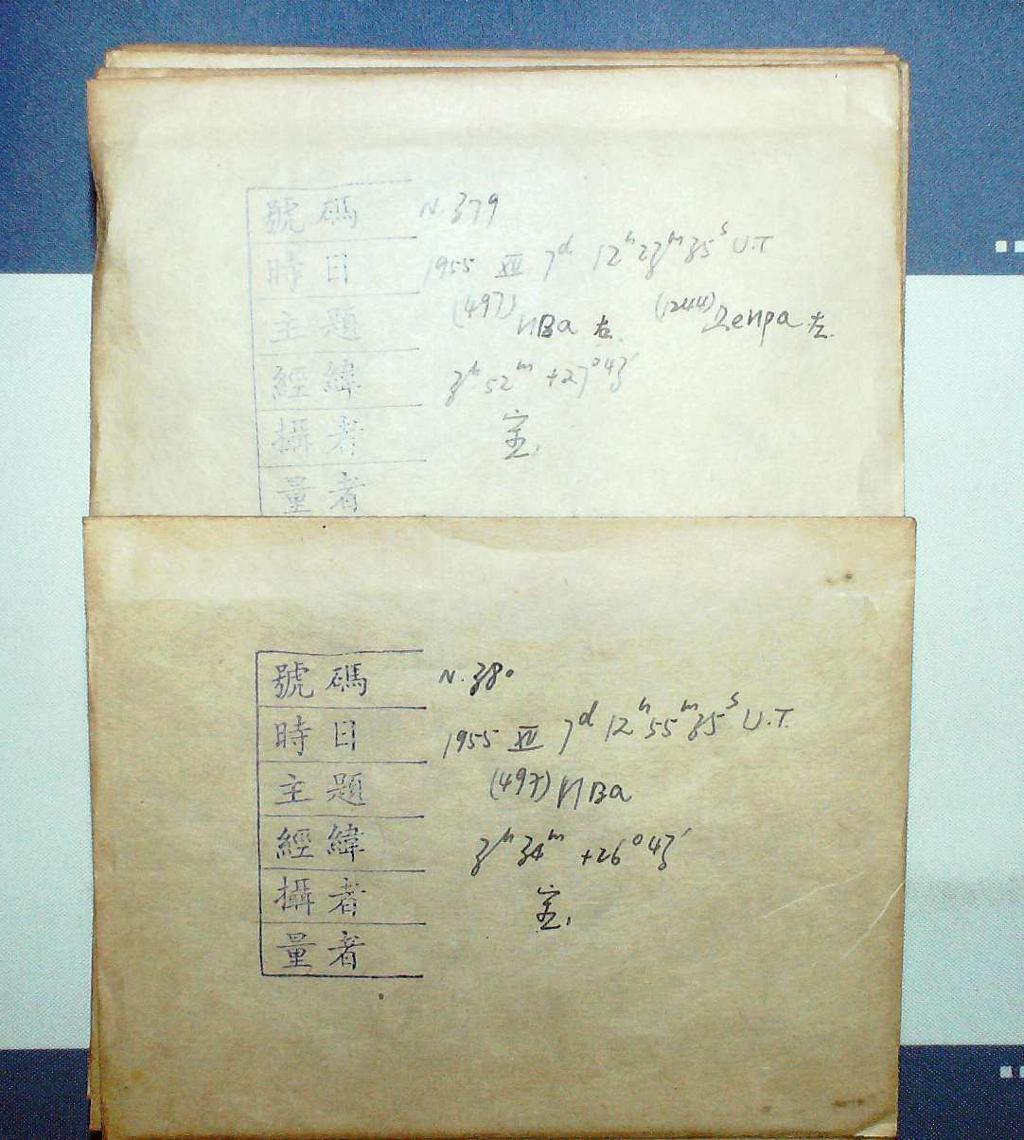 號碼 N. 379
時日 1955 XII 7d 12h23m35s U.T
主題 (497) ИBa 右. (1244) Деира 左.
經緯 3h 52m +27°43′
攝者
量者
號碼 N. 380
時日 1955 XII 7d 12h55m35s U.T.
主題 (497) ИBa
經緯 3h 34m +26°43′
攝者
量者